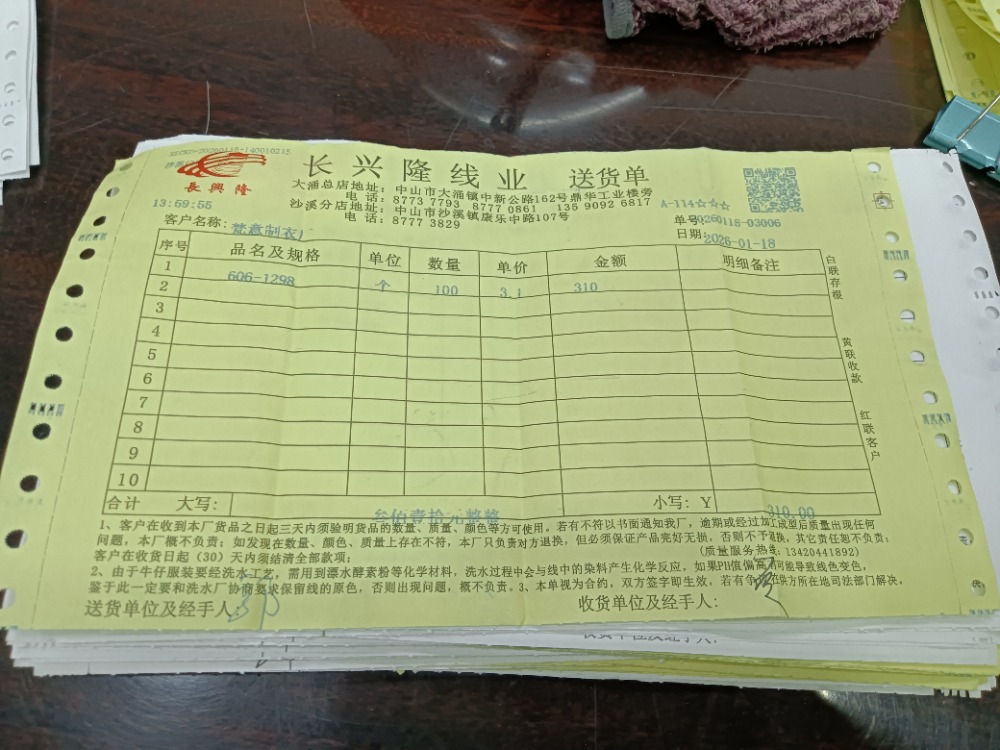 XSCKD-20260118-140010215
長興隆
长兴隆线业 送货单
大涌总店地址：中山市大涌镇中新公路162号鼎华工业楼旁
电话：8773 7793 8777 0861 135 9092 6817
沙溪分店地址：中山市沙溪镇康乐中路107号
电话：8777 3829
A-114☆☆☆
13:59:55
单号:
0118-03006
客户名称:梵意制衣厂
日期:2026-01-18
序号 品名及规格 单位 数量 单价 金额 明细备注
1 606-1298 个 100 3.1 310
2
3
4
5
6
7
8
9
10
合计 大写: 叁佰壹拾元整 小写: Y 310.00
白联存根
黄联收款
红联客户
1、客户在收到本厂货品之日起三天内须验明货品的数量、质量、颜色等方可使用。若有不符以书面通知我厂，逾期或经过加工成型后质量出现任何
问题，本厂概不负责；如发现在数量、颜色、质量上存在不符，本厂只负责对方退换，但必须保证产品完好无损，否则不予退换，其它责任恕不负责；
客户在收货日起（30）天内须结清全部款项；
(质量服务热线: 13420441892)
2、由于牛仔服装要经洗水工艺，需用到漂水酵素粉等化学材料，洗水过程中会与线中的染料产生化学反应，如果PH值偏高可能导致线色变色，
鉴于此一定要和洗水厂协商要求保留线的原色，否则出现问题，概不负责。3、本单视为合约，双方签字即生效。若有争 供方所在地司法部门解决。
送货单位及经手人:
收货单位及经手人: